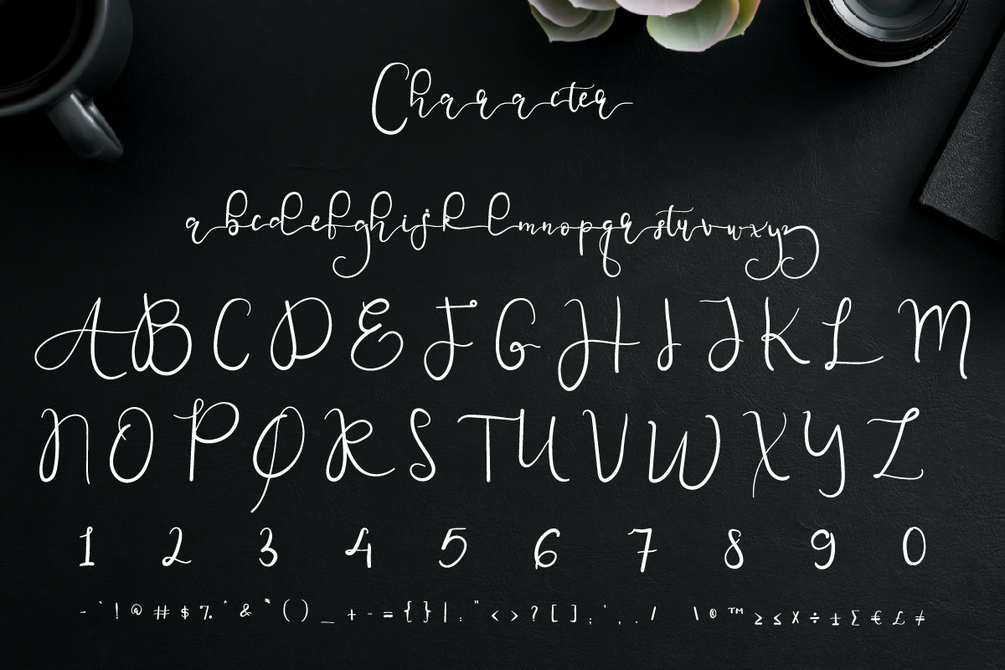 Character
abcdefghijklmnopqrstuvwxyz
ABCDEFGHIJKLM
NOPQRSTUVWXYZ
1 2 3 4 5 6 7 8 9 0
- ` ! @ # $ % ^ & * ( ) _ + - = { } | : " < > ? [ ] ; ' , . / \ ® ™ ≥ ≤ x ÷ ± Σ € £ ≠